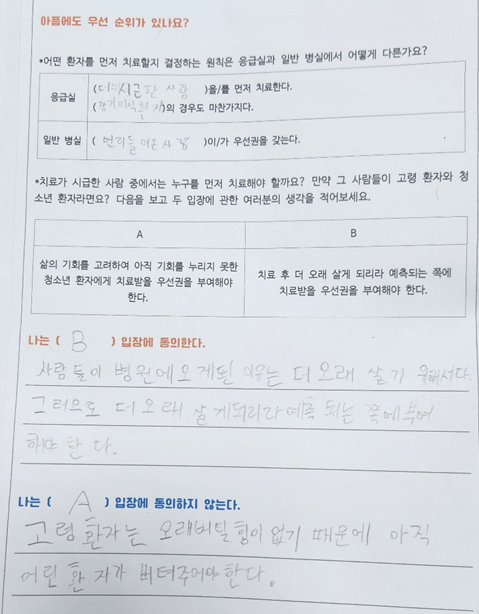 아픔에도 우선 순위가 있나요?
*어떤 환자를 먼저 치료할지 결정하는 원칙은 응급실과 일반 병실에서 어떻게 다른가요?
응급실
(더 시급한 사람 )을/를 먼저 치료한다.
(장기이식환자)의 경우도 마찬가지다.
일반 병실
( 먼저 들어온 사람 )이/가 우선권을 갖는다.
*치료가 시급한 사람 중에서는 누구를 먼저 치료해야 할까요? 만약 그 사람들이 고령 환자와 청
소년 환자라면요? 다음을 보고 두 입장에 관한 여러분의 생각을 적어보세요.
A
B
삶의 기회를 고려하여 아직 기회를 누리지 못한
청소년 환자에게 치료받을 우선권을 부여해야
한다.
치료 후 더 오래 살게 되리라 예측되는 쪽에
치료받을 우선권을 부여해야 한다.
나는 ( B ) 입장에 동의한다.
사람들이 병원에 오게된 이유는 더 오래 살기 위해서다.
그러므로 더 오래 살게되리라 예측 되는 쪽에 부여
해야 한다.
나는 ( A ) 입장에 동의하지 않는다.
고령 환자는 오래버틸 힘이 없기 때문에 아직
어린 환자가 버텨주어야한다.